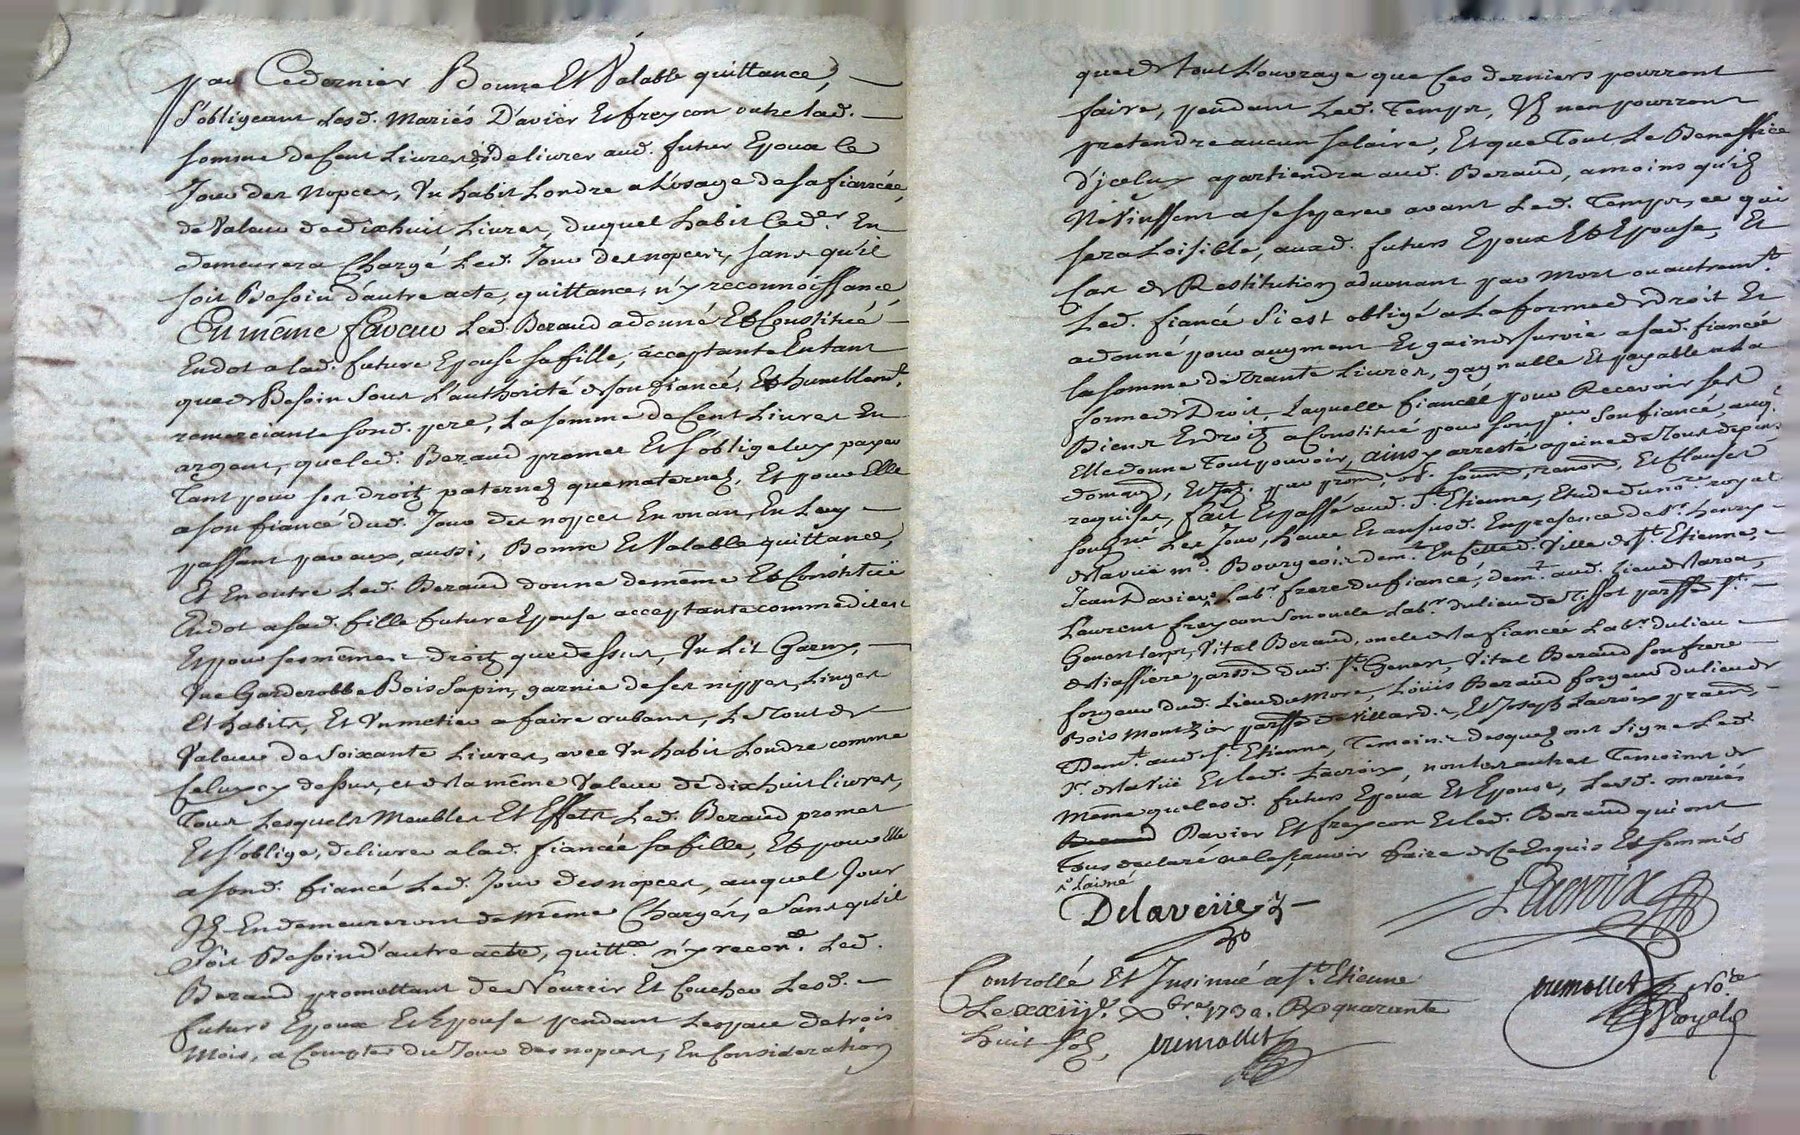 par Ce dernier Bonne Et Valable quittance,
S'obligeant Lesd. Mariés D'avier Et freycon outre lad.
somme de Cent Livres de delivrer aud. futur Epoux le
Jour des Nopces, Un habit Londre a L'usage de sa fiancée,
de Valeur de dixhuit Livres, duquel habit Led.er En
demeurera Chargé Led. Jour des nopces, sans qu'il
soit Besoin d'autre acte, quittance, n'y reconnoissance
En même faveur Led. Beraud a donné Et Constitué
En dot a lad. future Epouse sa fille, acceptante En tant
que de Besoin sous L'authorité de son fiancé, Et humblemt.
remerciant sond. pere, La somme de Cent Livres En
argent, que led. Beraud promet Et s'oblige luy payer
Tant pour ses droitz paternelz que maternelz, Et pour Elle
a son fiancé dud. Jour des nopces En un an, En Luy
passant par eux, aussi, Bonne Et Valable quittance,
Et En outre Led. Beraud donne de même Et Constitue
En dot a sad. fille future Epouse acceptante comme dit est
Et pour ses mêmes droitz que dessus, Un Lit Garny,
Une Garderobbe Bois Sapin, garnie de ses nippes, Linges
Et habits, Et Un metier a faire rubans, Le Tout de
Valeur de Soixante Livres, avec Un habit Londre comme
Celuy cy dessus, et de la même Valeur de dixhuit livres,
Tous Lesquels Meubles Et Effets Led. Beraud promet
Et s'oblige, delivrer a lad. fiancée sa fille, Et pour Elle
a sond. fiancé Led. Jour des nopces, auquel Jour
Ilz En demeureront de même Chargés, Sans qu'il
Soit Besoin d'autre acte, quittce. n'y reconce. Led.
Beraud promettant de Nourrir Et Coucher Lesd.
futurs Epoux Et Epouse pendant L'espace de trois
Mois, a Compter du Jour des nopces, En Consideration
que de tout L'ouvrage que Ces derniers pourront
faire, pendant Led. Temps, Ilz n'en pourront
pretendre aucun salaire, Et que Tout Le Beneffice
d'jceluy apartiendra aud. Beraud, a moins qu'ilz
Ne Vinssent a se separer avant Led. Temps, ce qui
sera Loisible, auxd. futurs Epoux Et Epouse, Et
Cas de Restitution advenant par Mort ou autremt.
Led. fiancé s'i est obligé a La forme de droit Et
a donné pour augment Et gain de survie a sad. fiancée
la somme de Trante Livres, gagnable Et payable a La
forme de Droit, Laquelle fiancée pour Recevoir ses
Biens Endroitz a Constitué pour son pur Son fiancé, auql.
Elle donne Tout pouvoir, ainsy arresté a peine de Tous depens
dommages, Et Int. par prom. ob. soum. renon. Et Clauses
requises, fait Et passé aud. St. Etienne, Etude du nore. royal
soussné. Les Jour, heure Et an susd. En presence de Sr. henry
delaveüe md. Bourgeois demt. En cette d. Ville de St. Etienne,
Jean Davier Labr. frere du fiancé, demt. aud. lieu de Laroa,
Laurent freycon son oncle Labr. du lieu de Tissot parsse St.
Genest Lerpt, Vital Beraud, oncle de la fiancée Labr. du lieu
de Liassiere parsse dud. St. Genest, Vital Beraud son frere
forgeur dud. Lieu de More, Loüis Beraud forgeur du lieu de
Bois Monzil parsse de Villards, Et Joseph Lacroix pratn.
Demt. aud. St. Etienne, Temoins desquelz ont signé Led.
Sr. delaveüe Et led. Lacroix, non les autres Temoins de
Même que lesd. futurs Epoux Et Epouse, Lesd. mariés
Davier Et freycon Et led. Beraud qui ont
tous declaré ne le sçavoir faire de Ce Enquis Et sommés
Laisné
Delaveüe
Lacroix
Controllé Et Insinué a St. Etienne
Le xxiije. Xbre. 1730. Rx quarante
huit solz, tremollet
tremollet nore
Royal